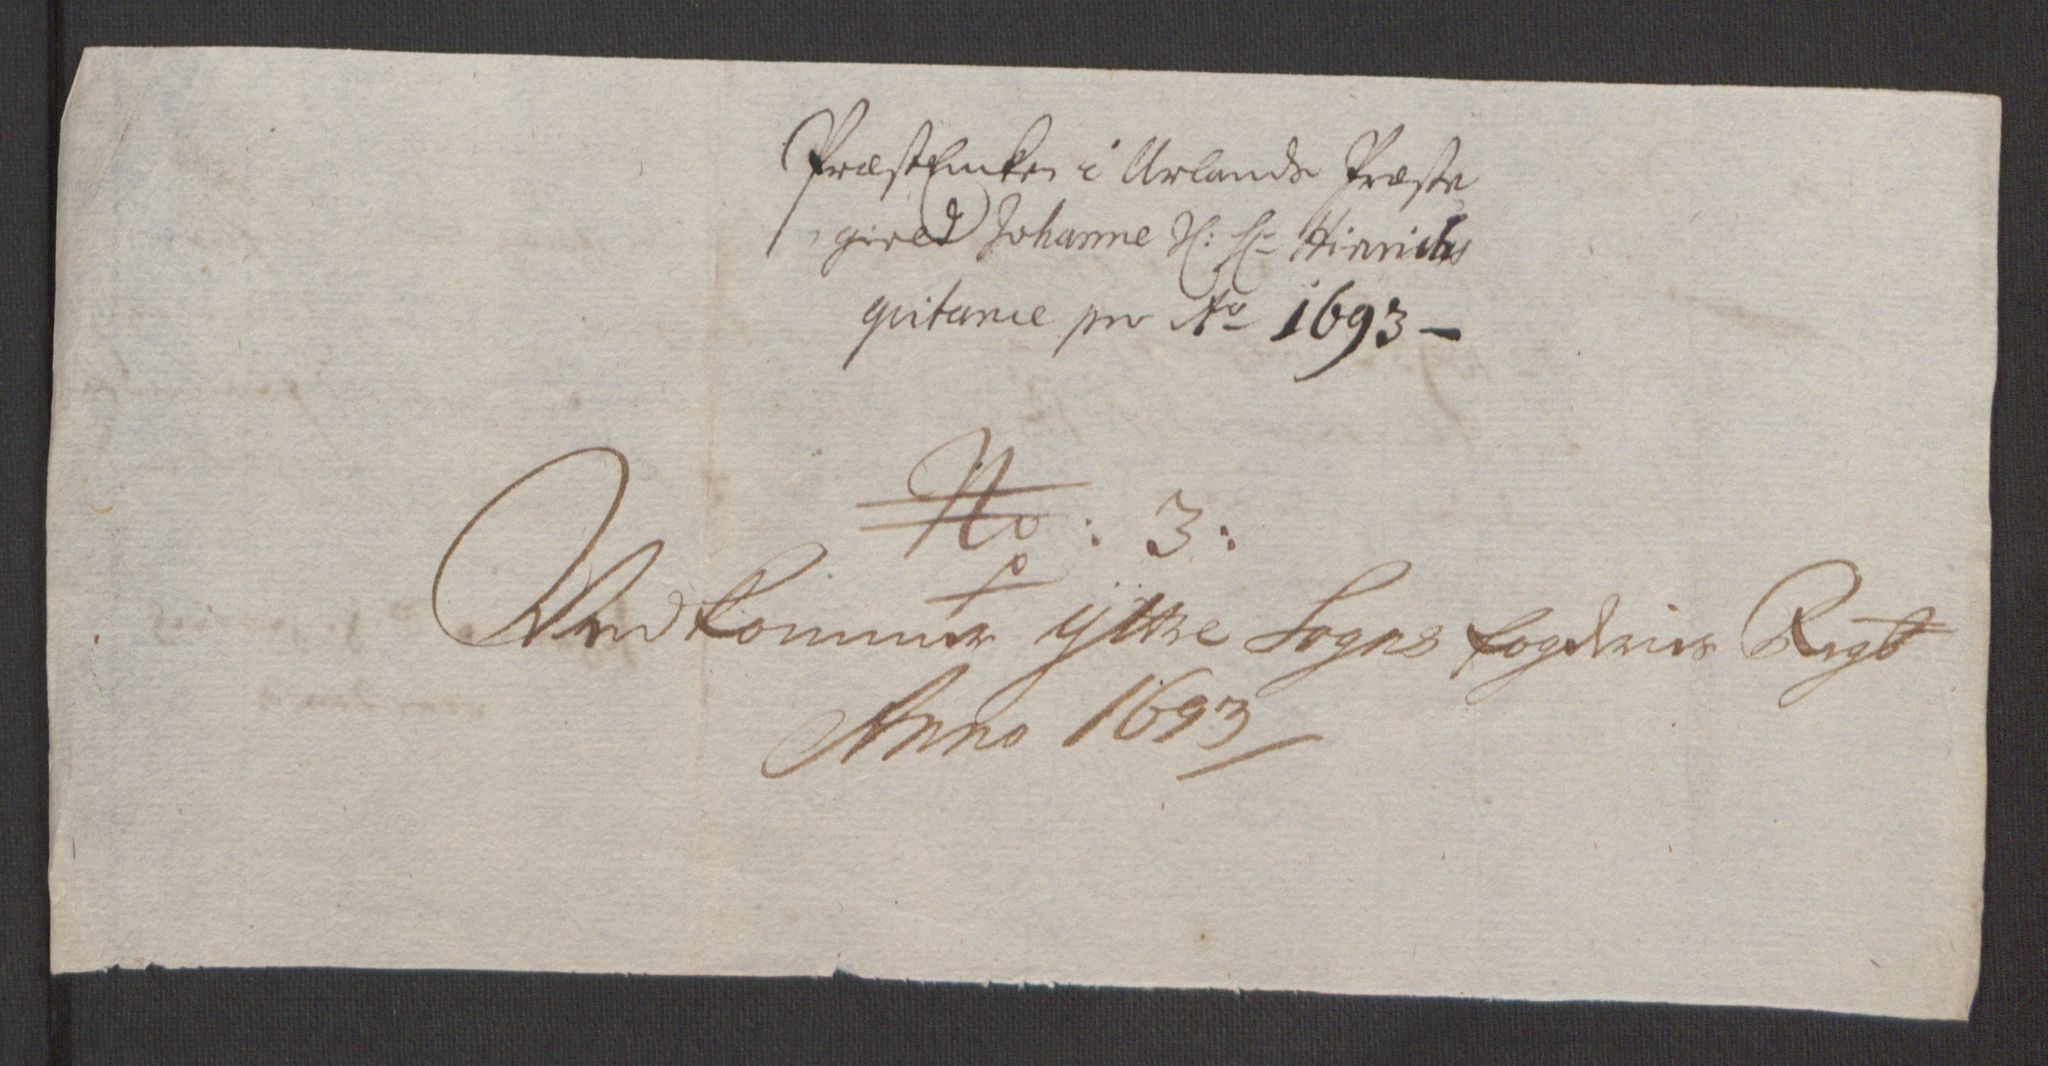 Præst Encke i Urlands Præste
gield Johanne S: Hr Hinrichs
qvitance pro Ao 1693 –
No: 3:
Vedkommer Ÿttre Sogns fogderies Regb
Anno 1693